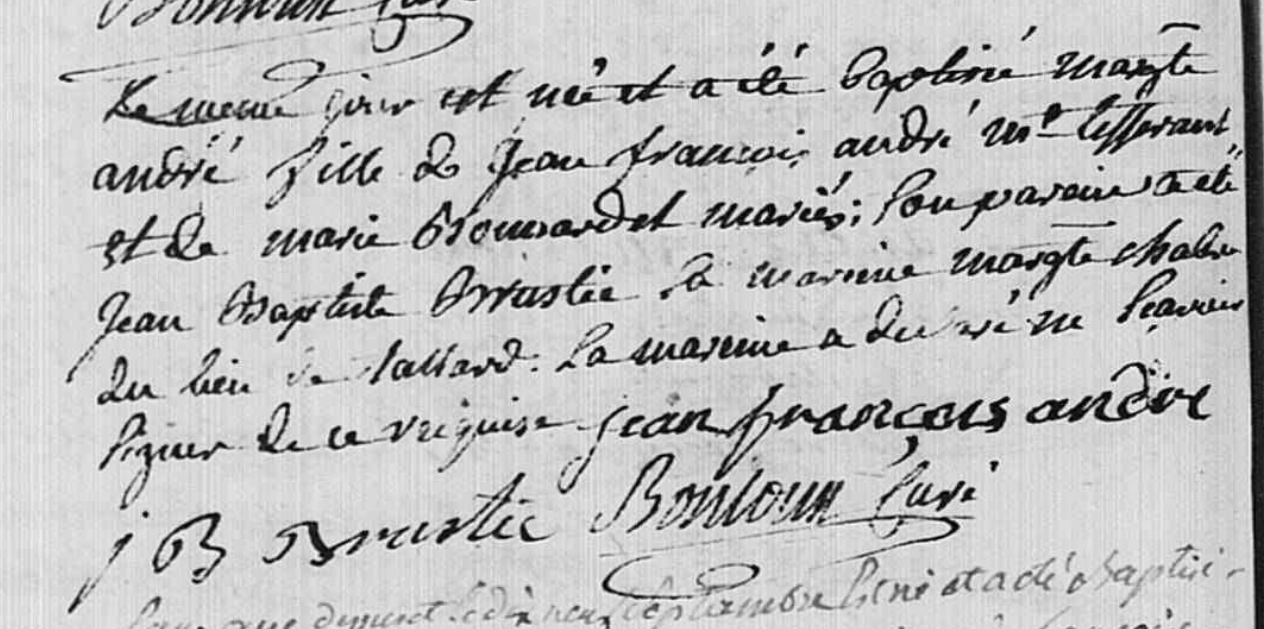 Bonloun Curé
Le meme jour est née et a été baptisée margte
andré fille de Jean françois andré mtre tisserant
et de marie mariés; son parein a eté
Jean Baptiste Brustie la mareine margte chabre
du lieu de tallard. La mareine a declaré ne sçavoir
signer de ce requise jean françois andre
j B Brustie Bonloun Curé
né et a eté Baptisé